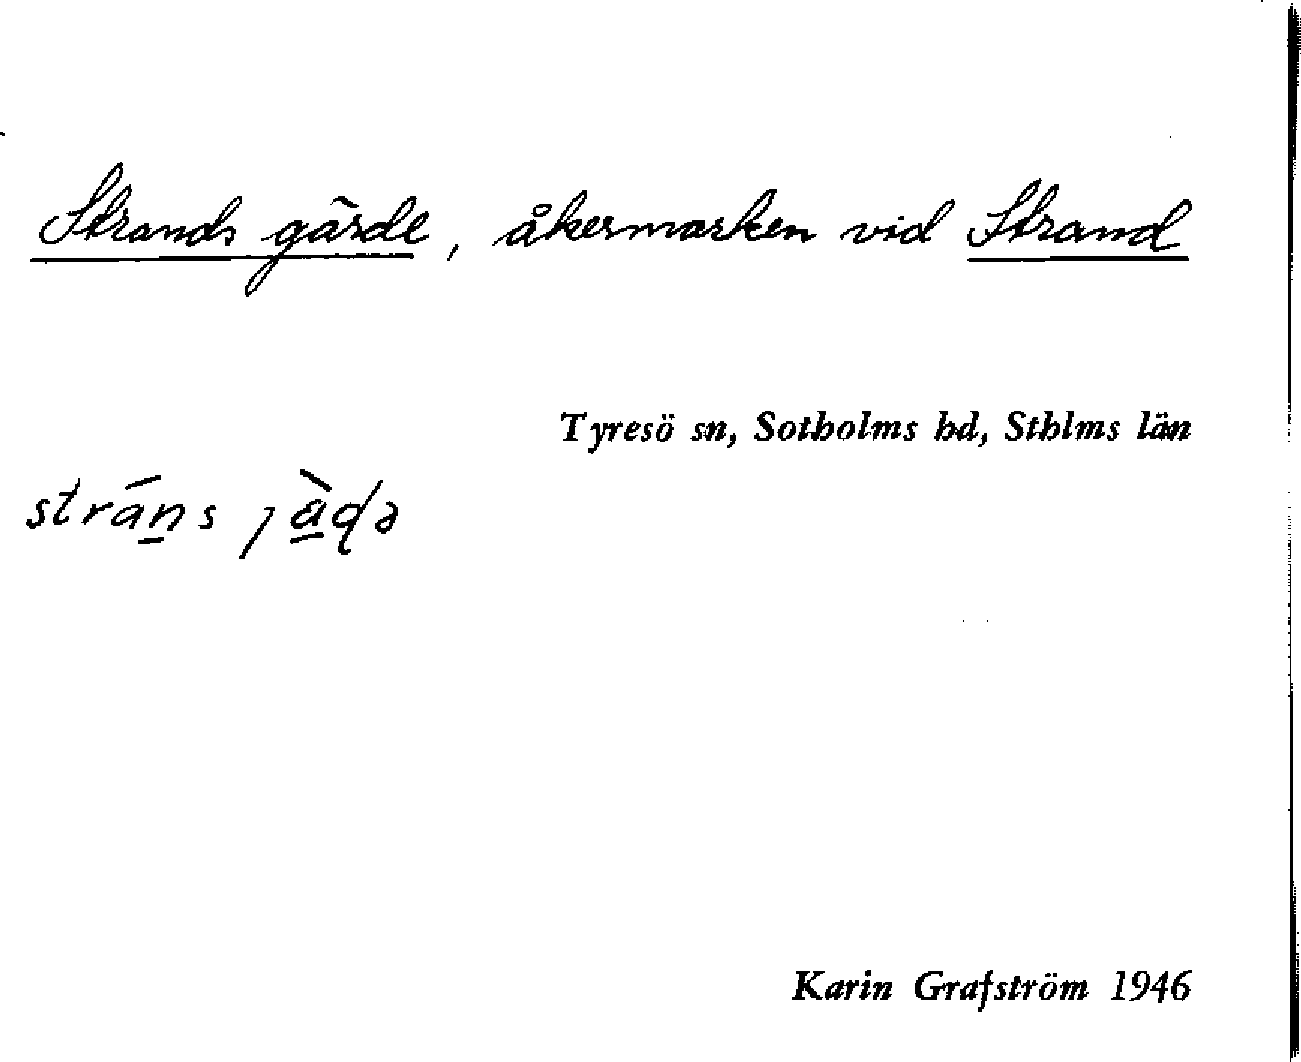 Strands gärde, åkermarken vid Strand
Tyresö sn, Sotholms hd, Sthlms län
Karin Grafström 1946